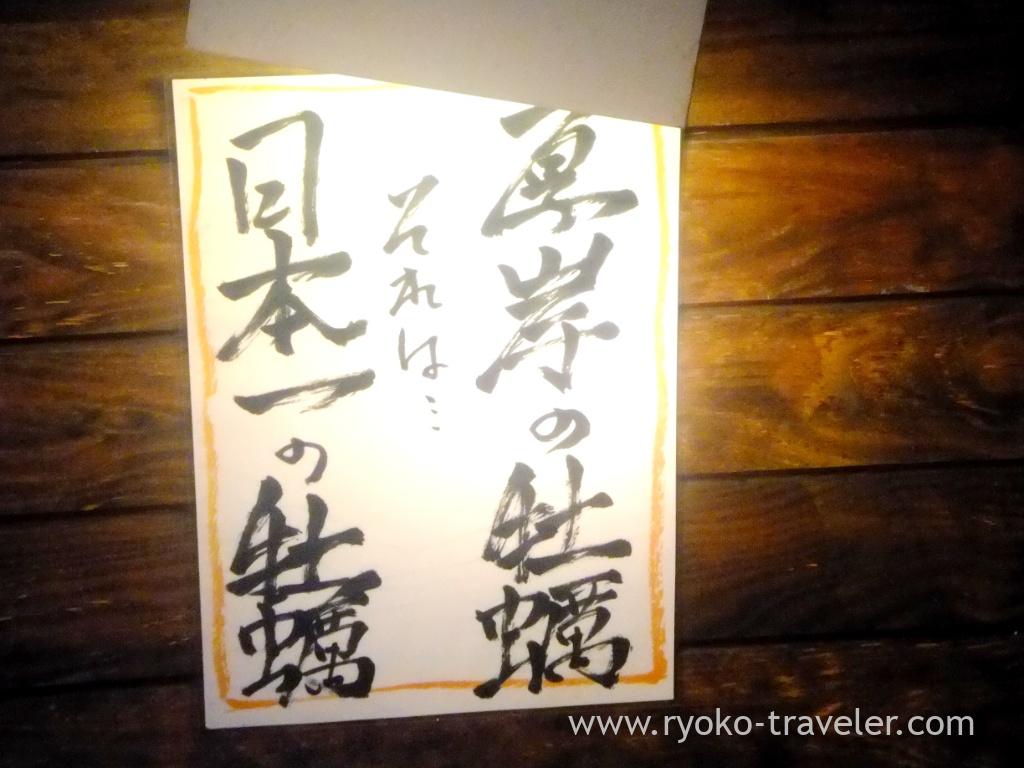 厚岸の牡蠣
それは…
日本一の牡蠣
www.ryoko-traveler.com